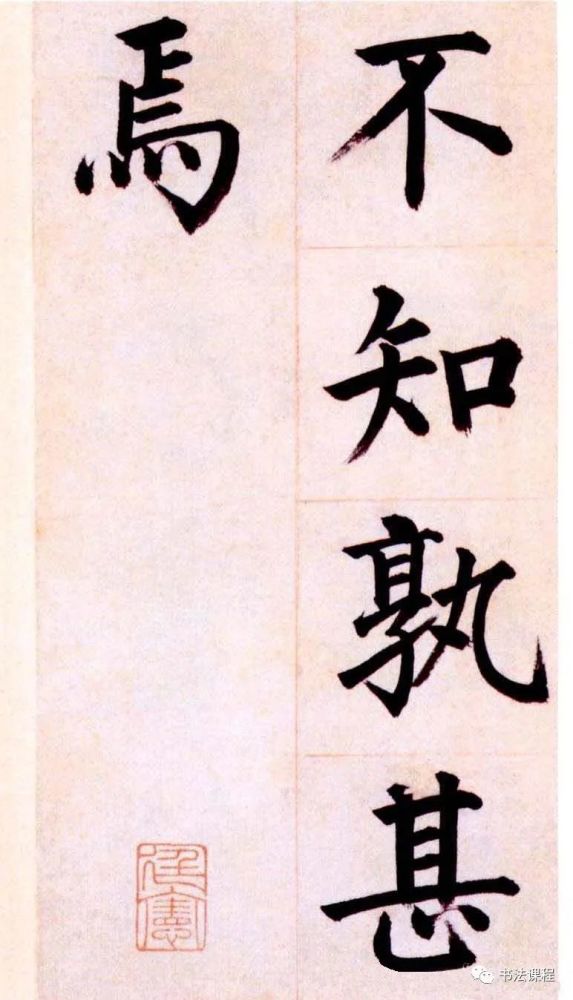 不知孰甚
焉
书法课程